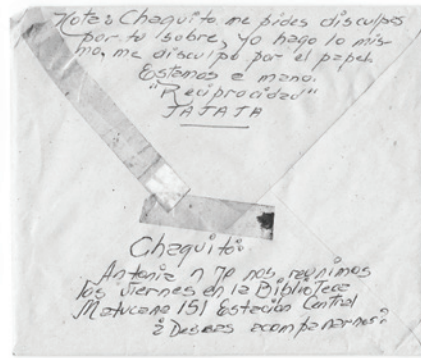 Nota: Chaquito me pides disculpas
por tu sobre, yo hago lo mis-
mo, me disculpo por el papel.
Estamos a mano.
"Reciprocidad"
JAJAJA
Chaquito:
Antonia y yo nos reunimos
los viernes en la Biblioteca
Matucana 151 Estación Central
¿Deseas acompañarnos?